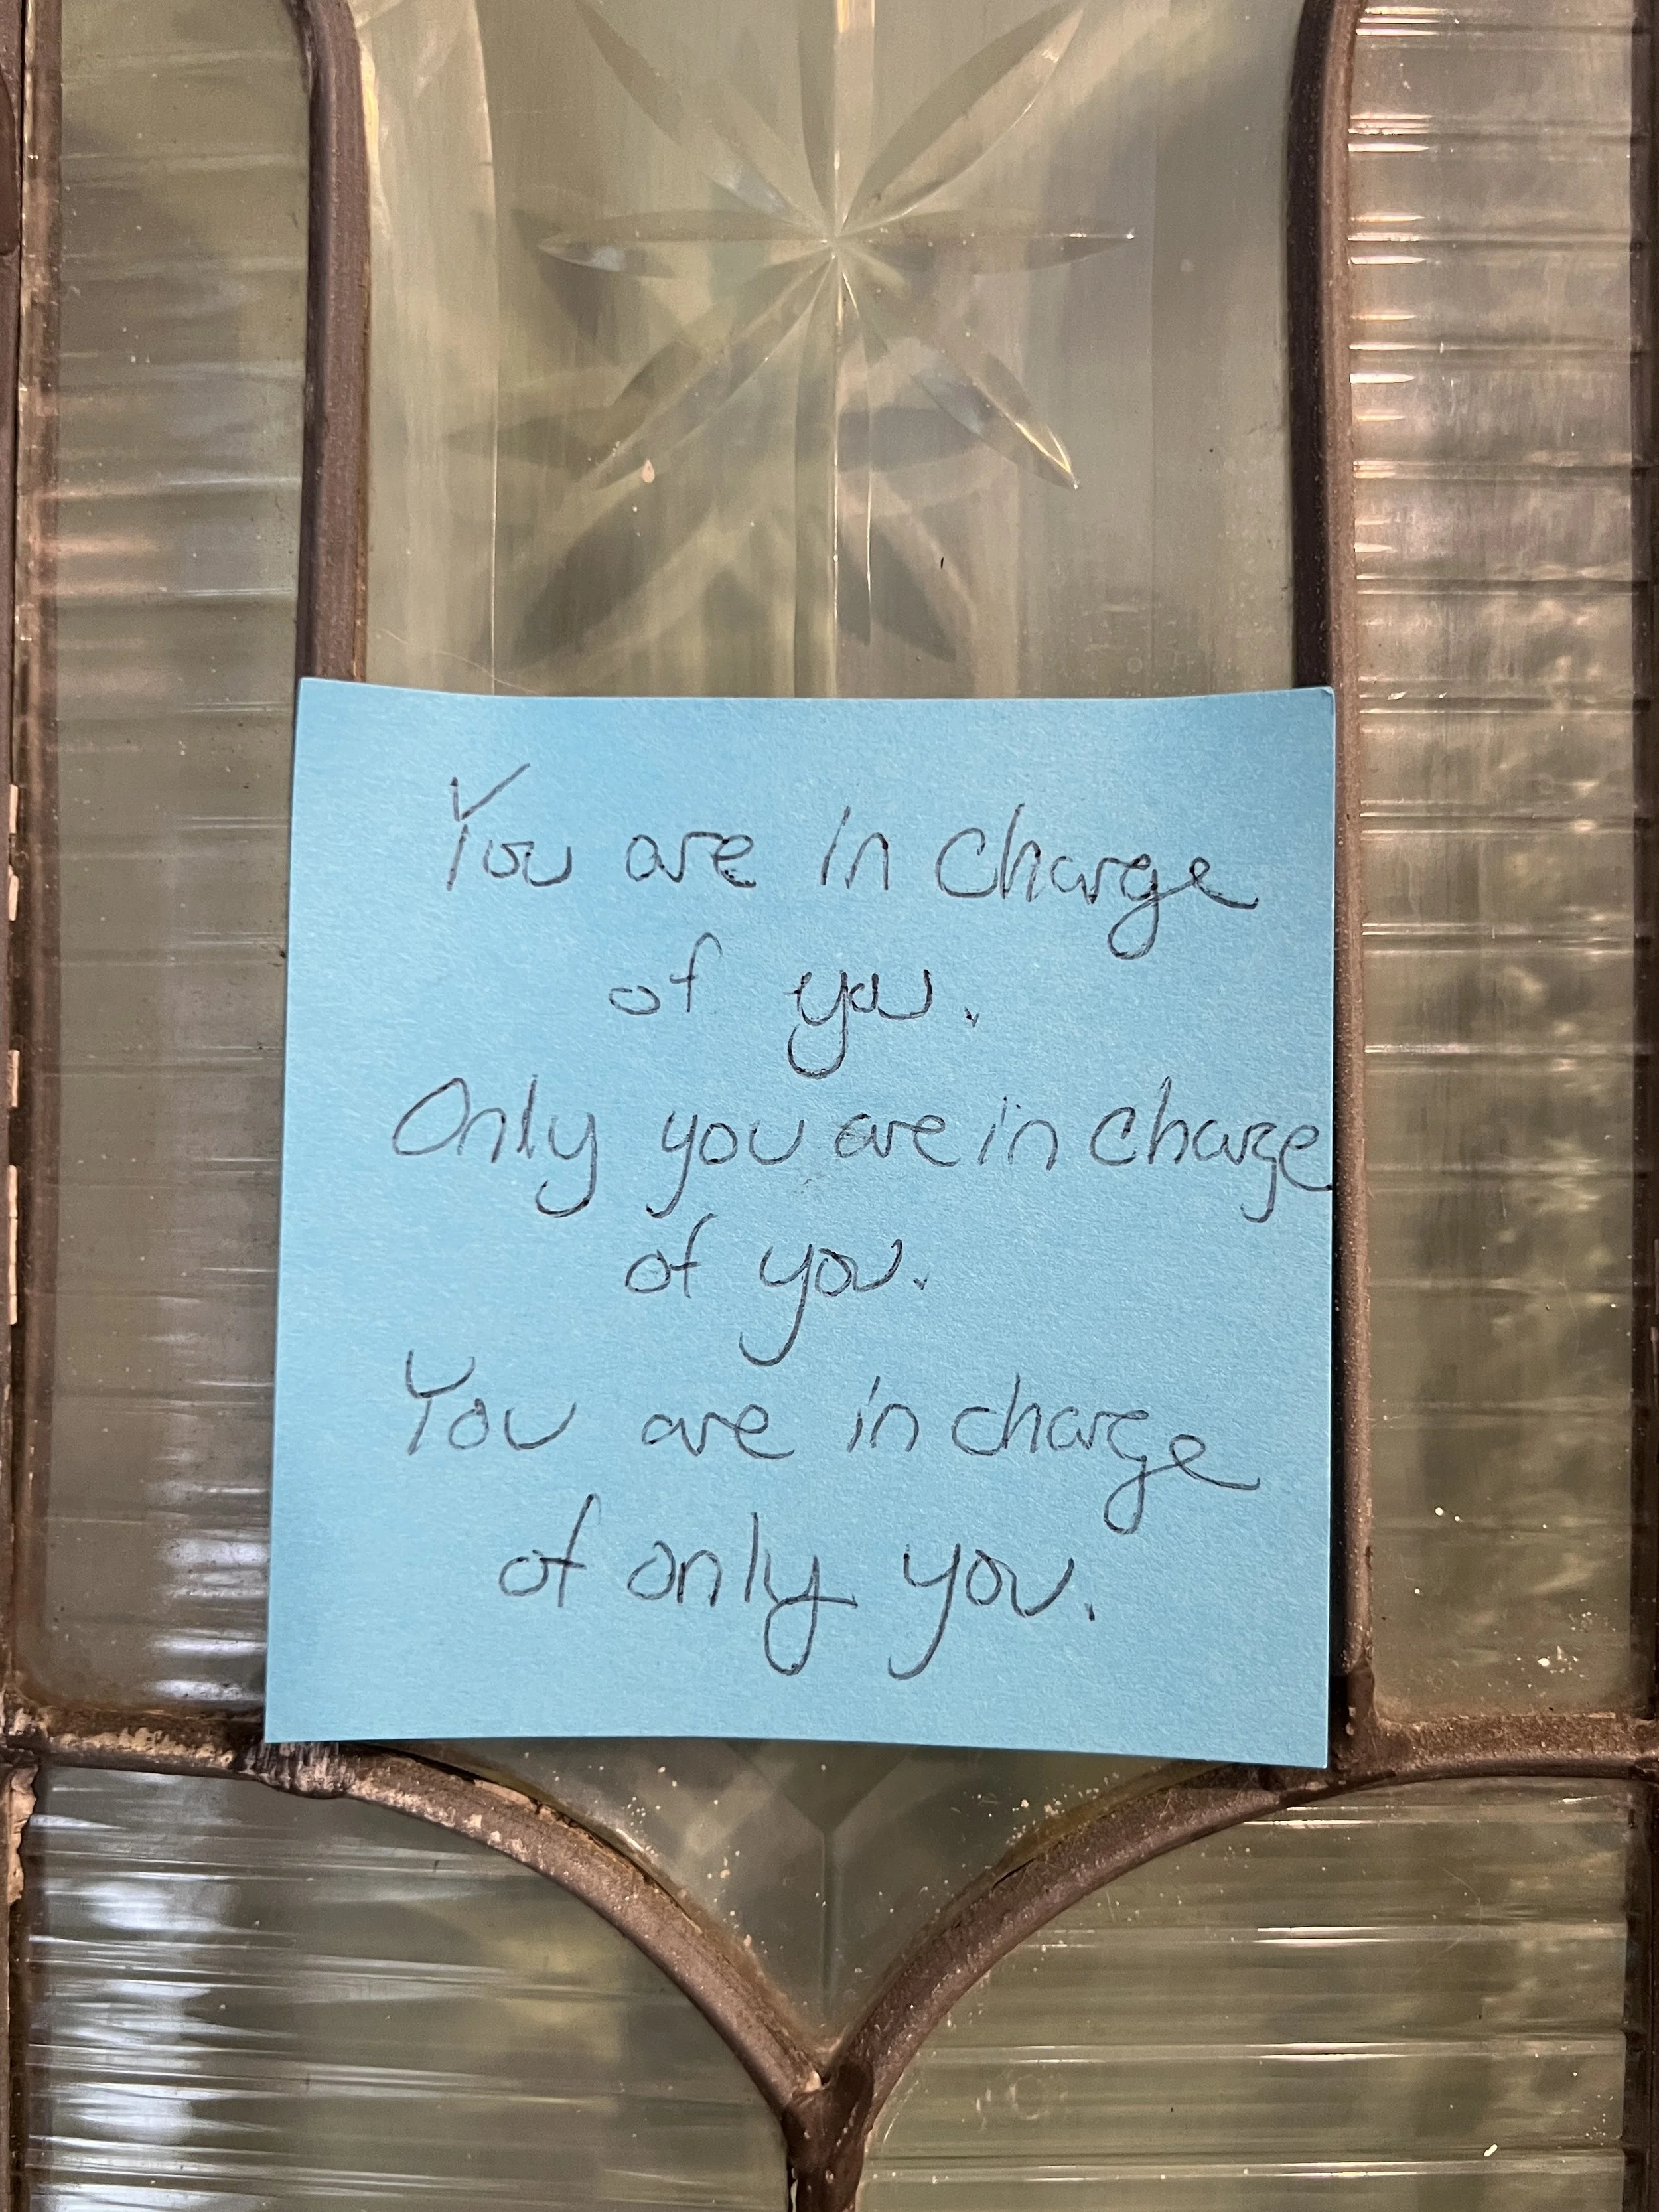 You are in charge
of you.
Only you are in charge
of you.
You are in charge
of only you.